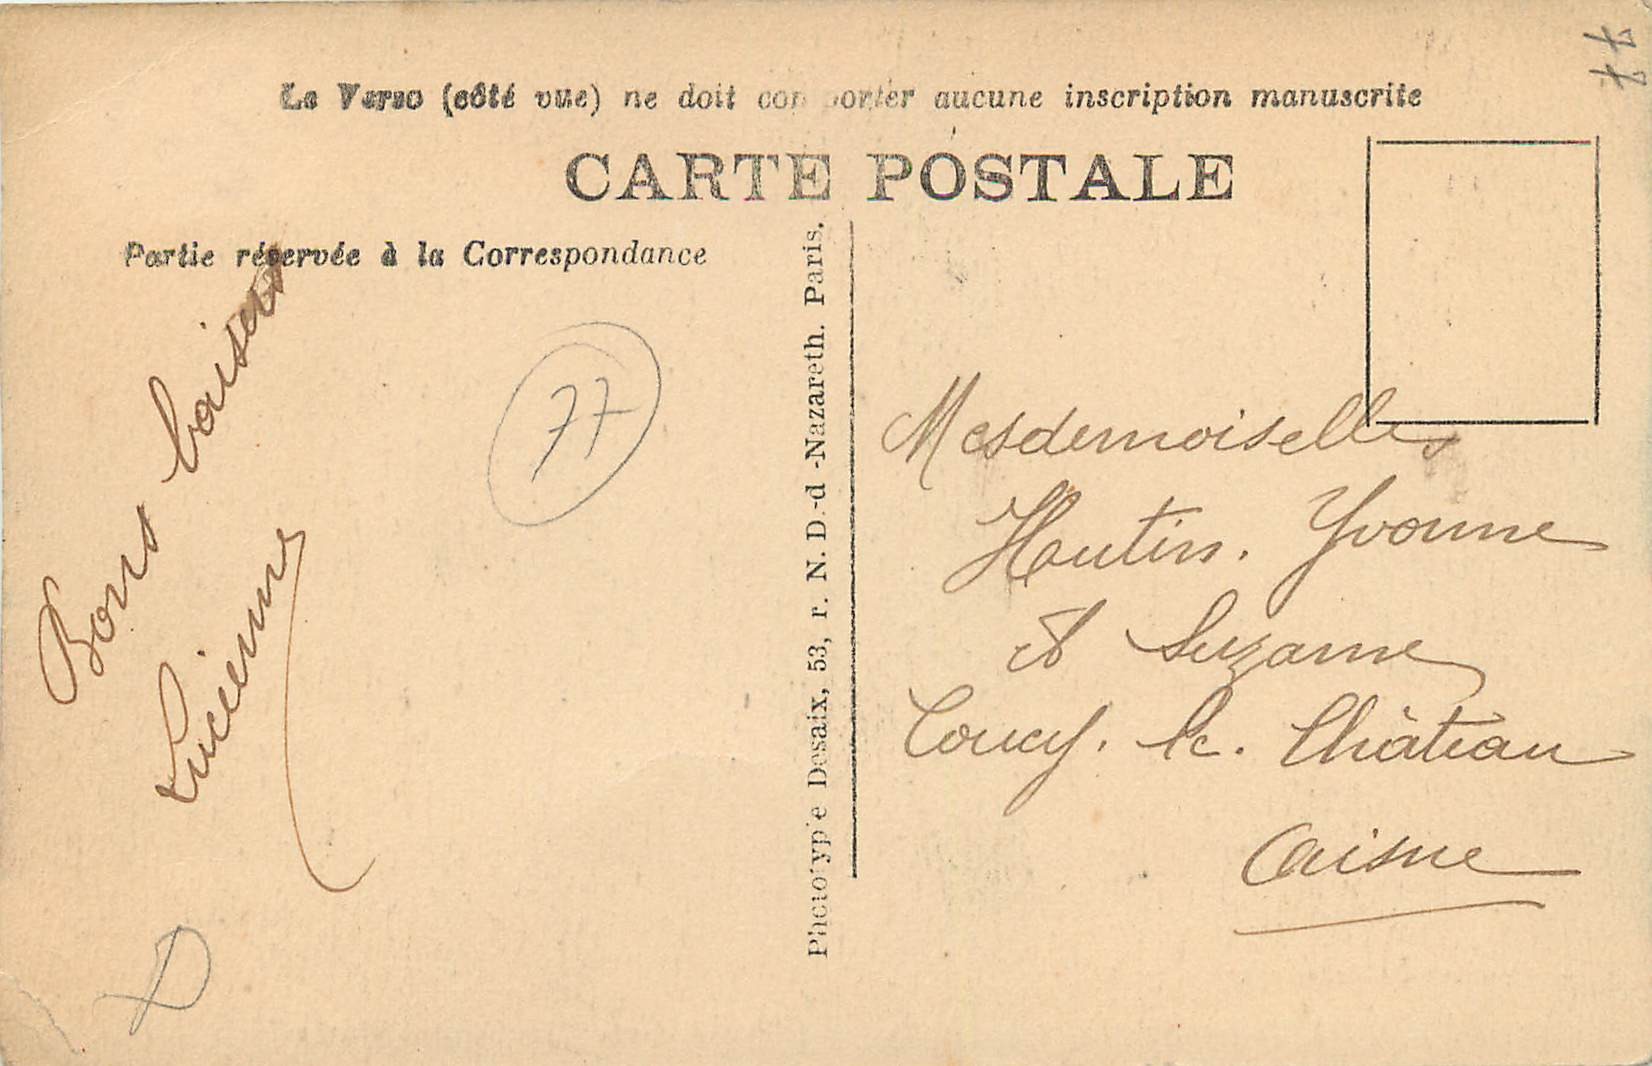 Le Verso (côté vue) ne doit comporter aucune inscription manuscrite
CARTE POSTALE
Partie réservée à la Correspondance
Bons baisers
Lucienne
77
Phototypie Desaix, 53, r. N. D.-d -Nazareth. Paris.
Mesdemoiselles
Hutin. Yvonne
et Suzanne
Coucy. le. Château
Aisne
77